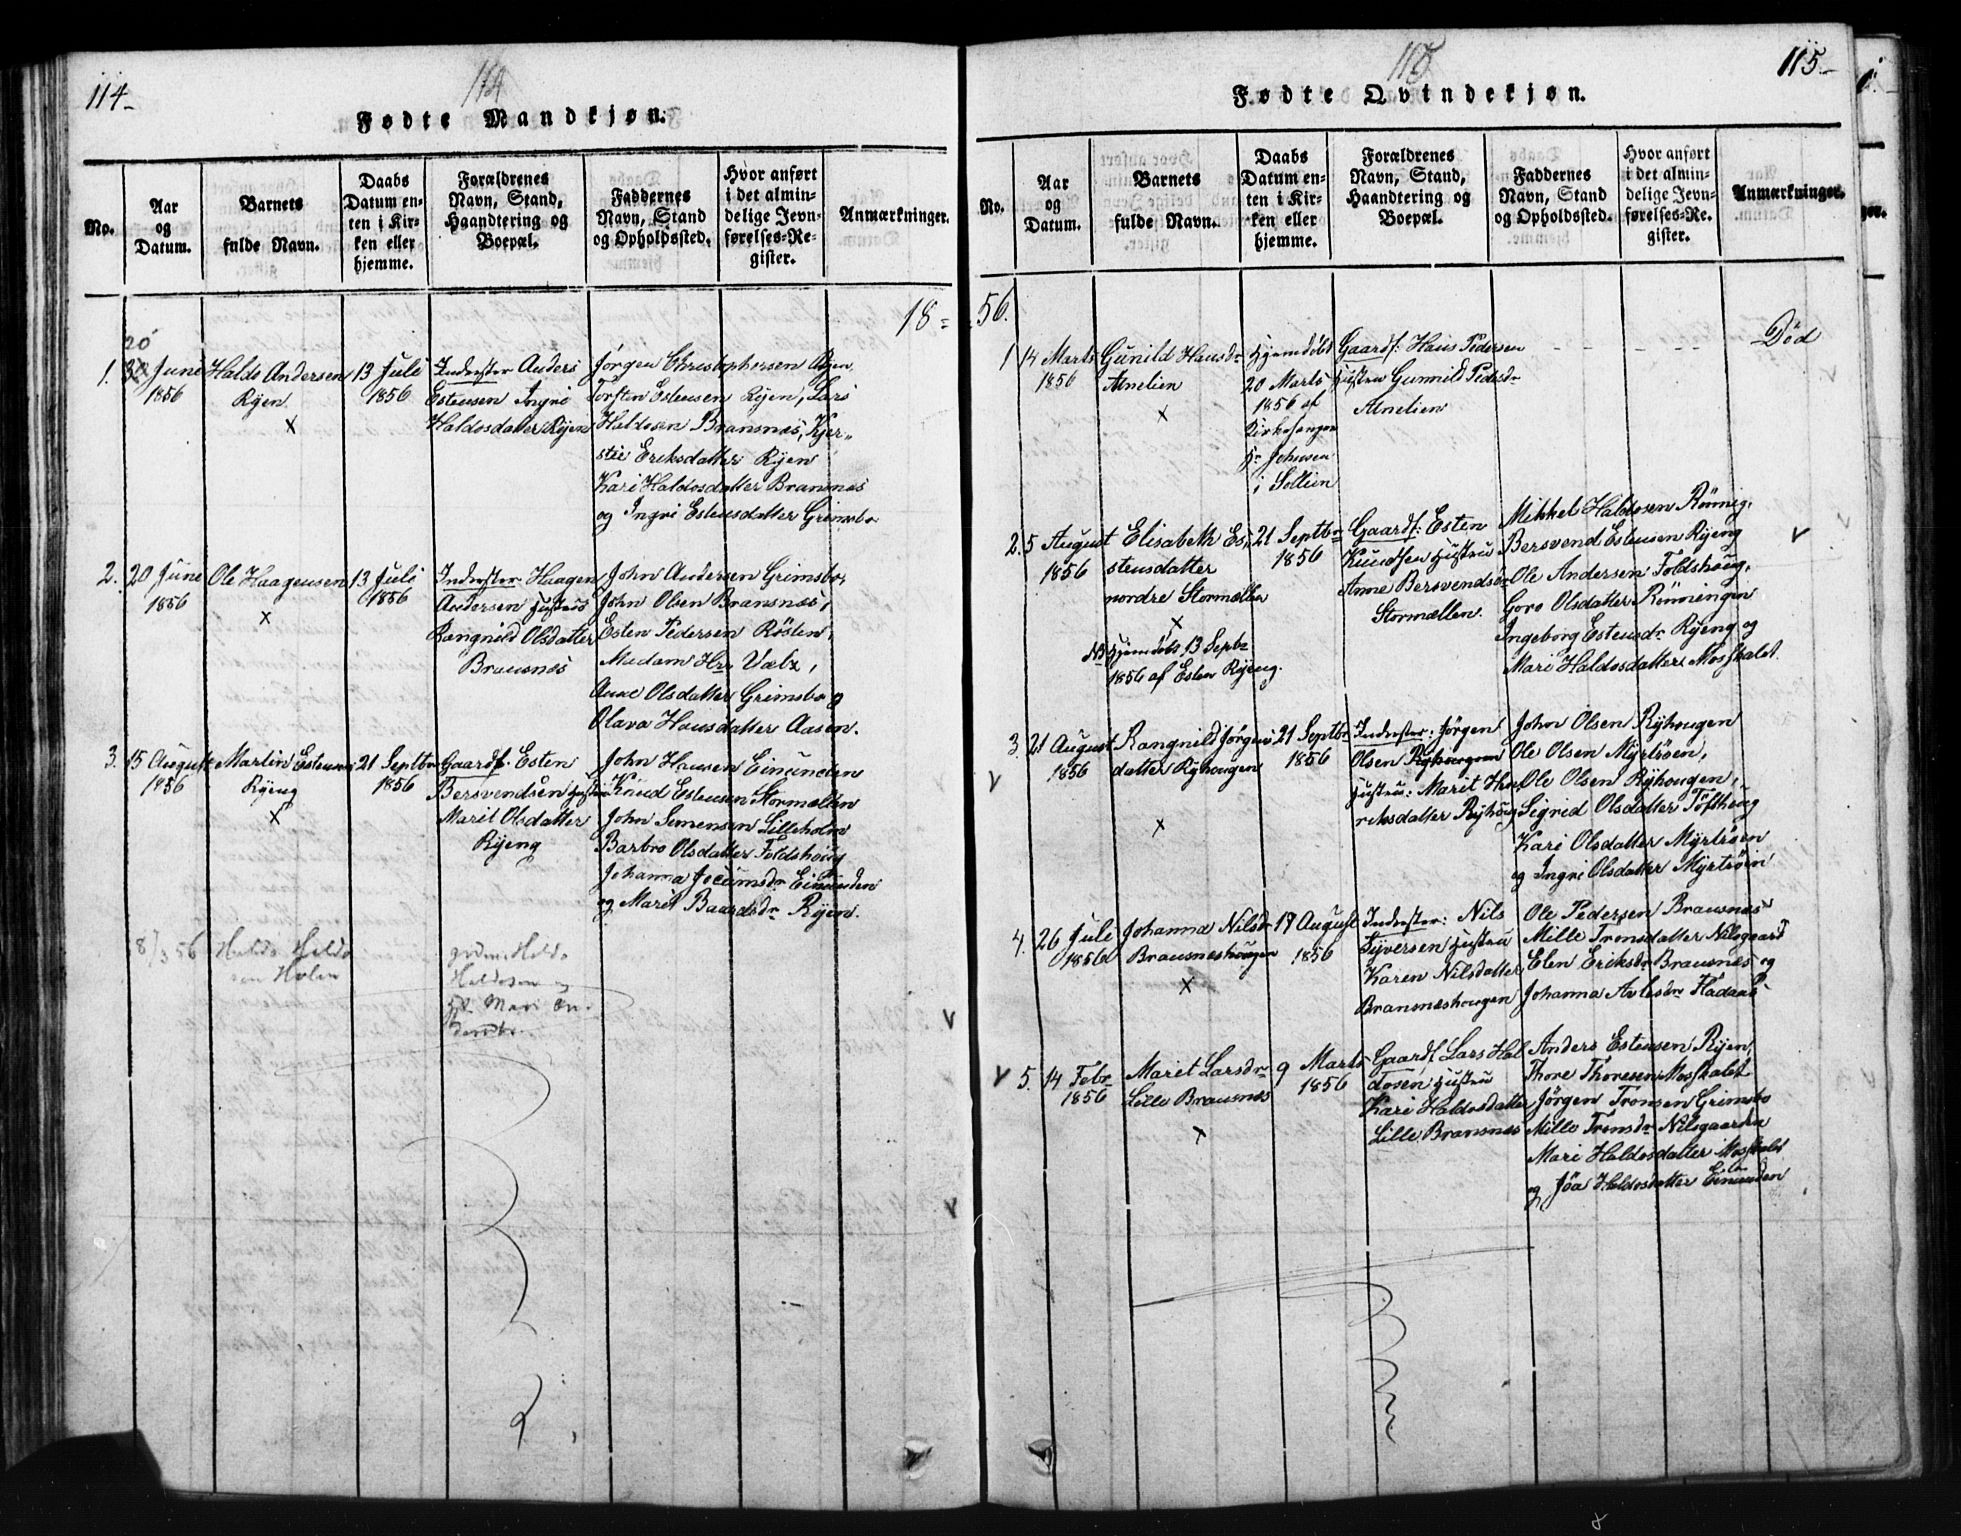 114-
114
Fødte Mandkjøn.
No.
Aar og Datum.
Barnets fulde Navn.
Daabs Datum enten i Kirken eller hjemme.
Forældrenes Navn, Stand, Haandtering og Boepæl.
Faddernes Navn, Stand og Opholdssted.
Hvor anført i det almindelige Jevnførelses-Register.
Anmærkninger.
18=
1.
20
June
1856
Haldo Andersen
Ryen
x
13 Juli
1856
Inderster Anders
Estensen Ingri
Haldosdatter Ryen
Jørgen Christophersen Ryen
Torsten Estensen Ryen, Lars
Haldosen Bransnæs, Kjer-
stie Eriksdatter Ryen
Kari Haldosdatter Bransnæs
og Ingri Estensdatter Grimsbo
2.
20 June
1856
Ole Haagensen
x
13 Juli
1856
Inderster Haagen
Andersen Hustru
Rangnild Olsdatter
Bransnes
John Andersen Grimsbo,
John Olsen Bransnæs,
Esten Pedersen Røsten,
Madam Hrr
Anne Olsdatter Grimsbo og
Olava Hansdatter Aasen.
3.
15 August
1856
Martin Estensen
Ryeng
x
21 Septbr
1856
Gaardf. Esten
Bersvendsen Hustru
Marit Olsdatter
Ryeng
John Hansen Einunden
Knud Estensen Stormællen
John Simensen Lilleholm
Barbro Olsdatter Foldshoug
Johanna Jocumsdr Einunden
og Marit Baardsdr Ryen.
8/3 56
Haldo Haldo
sen Holen
Haldo
Haldosen og
Mari
115
115-
Fødte Qvindekjøn.
No.
Aar og Datum.
Barnets fulde Navn.
Daabs Datum enten i Kirken eller hjemme.
Forældrenes Navn, Stand, Haandtering og Boepæl.
Faddernes Navn, Stand og Opholdssted.
Hvor anført i det almindelige Jevnførelses-Register.
Anmærkninger.
56.
1
14 Marts
1856
Gunild Hansdr
Atnelien
x
Hjemdøbt
20 Marts
1856 af
Kirkesanger
Hr Johnsen
i Sollien
Gaardf: Hans Pedersen
Hustru Gunnild Pedersdr
Atnelien
Død
2.
5 August
1856
Elisabeth Es-
stensdatter
nordre Stormællen
x
NB Hjemdøbt 13 Septbr
1856 af Esten Ryeng.
21 Septbr
1856
Gaardf: Esten
Knudsen Hustru
Anne Bersvendsdr
Stormællen.
Mikkel Haldosen Rønnig,
Bersvend Estensen Ryeng
Ole Andersen Foldshoug,
Goro Olsdatter Rønningen
Ingeborg Estensdr Ryeng og
Mari Haldosdatter Mosskalet
3
21 August
1856
Rangnild Jørgens-
datter Ryhougen
x
21 Septbr
1856
Inderster: Jørgen
Olsen Ryhougen
Hustru: Marit Hen
riksdatter Ryhoug
John Olsen Ryhougen
Ole Olsen Myrtrøen,
Ole Olsen Ryhougen,
Sigrid Olsdatter Tøfthoug
Kari Olsdatter Myrtrøen
og Ingri Olsdatter Myrtrøen
4.
26 Juli
1856
Johanna Nilsdr
Bransneshougen
x
17 August
1856
Inderster: Nils
Syversen Hustru
Karen Nilsdatter
Bransneshougen
Ole Pedersen Bransnæs
Mille Tronsdatter Nilsgaard
Elen Eriksdr Bransnæs og
Johanna
5.
14 Febr
1856
Marit Larsdr
Lille Bransnæs
x
9 Marts
1856
Gaardf Lars Hal
dosen, Hustru
Kari Haldosdatter
Lille Bransnæs
Anders Estensen Ryen,
Thore Thoresen Mosskalet
Jørgen Tronsen Grimsbo
Mille Tronsdr Nilsgaarden
Mari Haldosdatter Mosskalet
og Jøa Haldosdatter Einunden